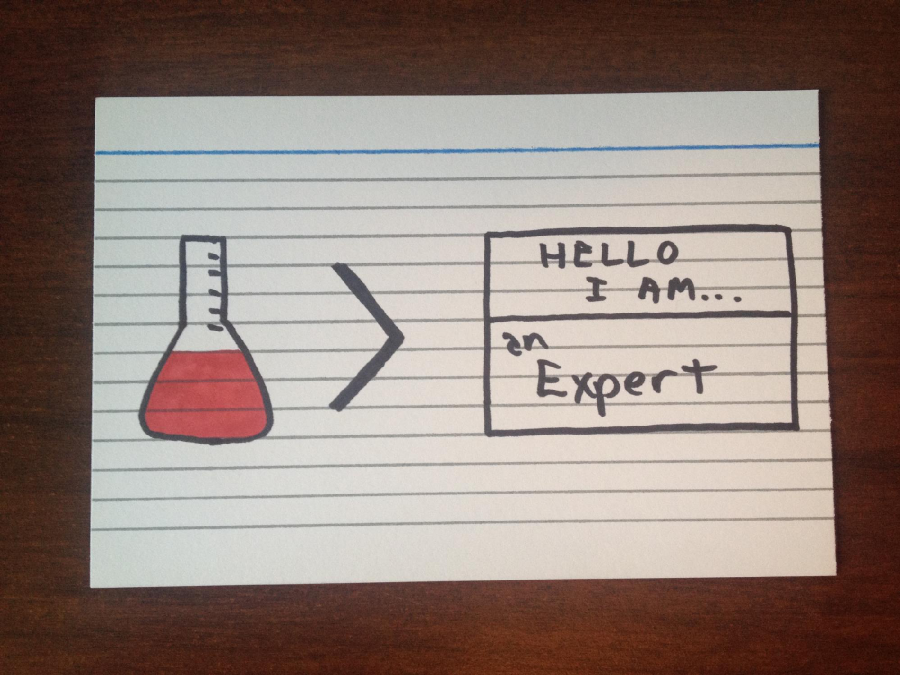 >
HELLO
I AM...
an
Expert